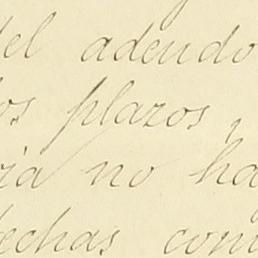 del adendo
os plazos,
rá no ha
fechas com